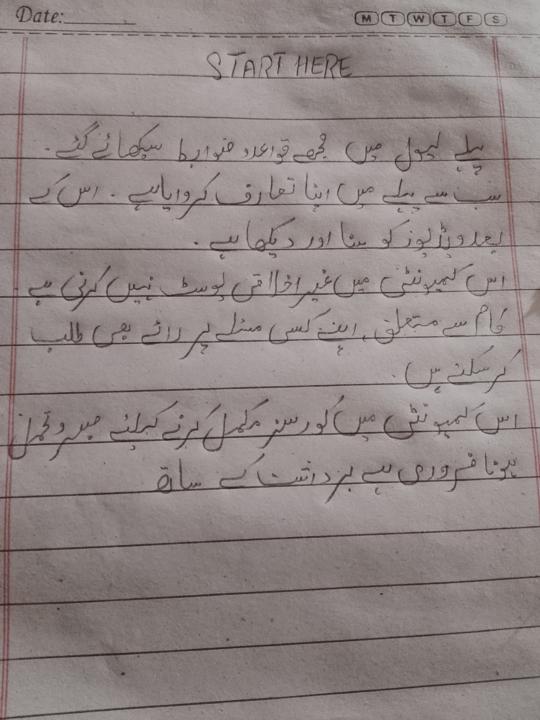 Date:
M T W T F S
START HERE
پہلے لیول میں مجھے قواعد و ضوابط سیکھائے گئے۔
سب سے پہلے میں اپنا تعارف کروایا ہے۔ اس کے
بعد ویڈیوز کو سنا اور دیکھا ہے۔
اس کمیونٹی میں غیر اخلاقی پوسٹ نہیں کرنی ہے
کام سے متعلق، اپنے کسی مسئلے پر رائے بھی طلب
کر سکتے ہیں۔
اس کمیونٹی میں کورسز مکمل کرنے کیلئے صبر و تحمل
ہونا ضروری ہے برداشت کے ساتھ